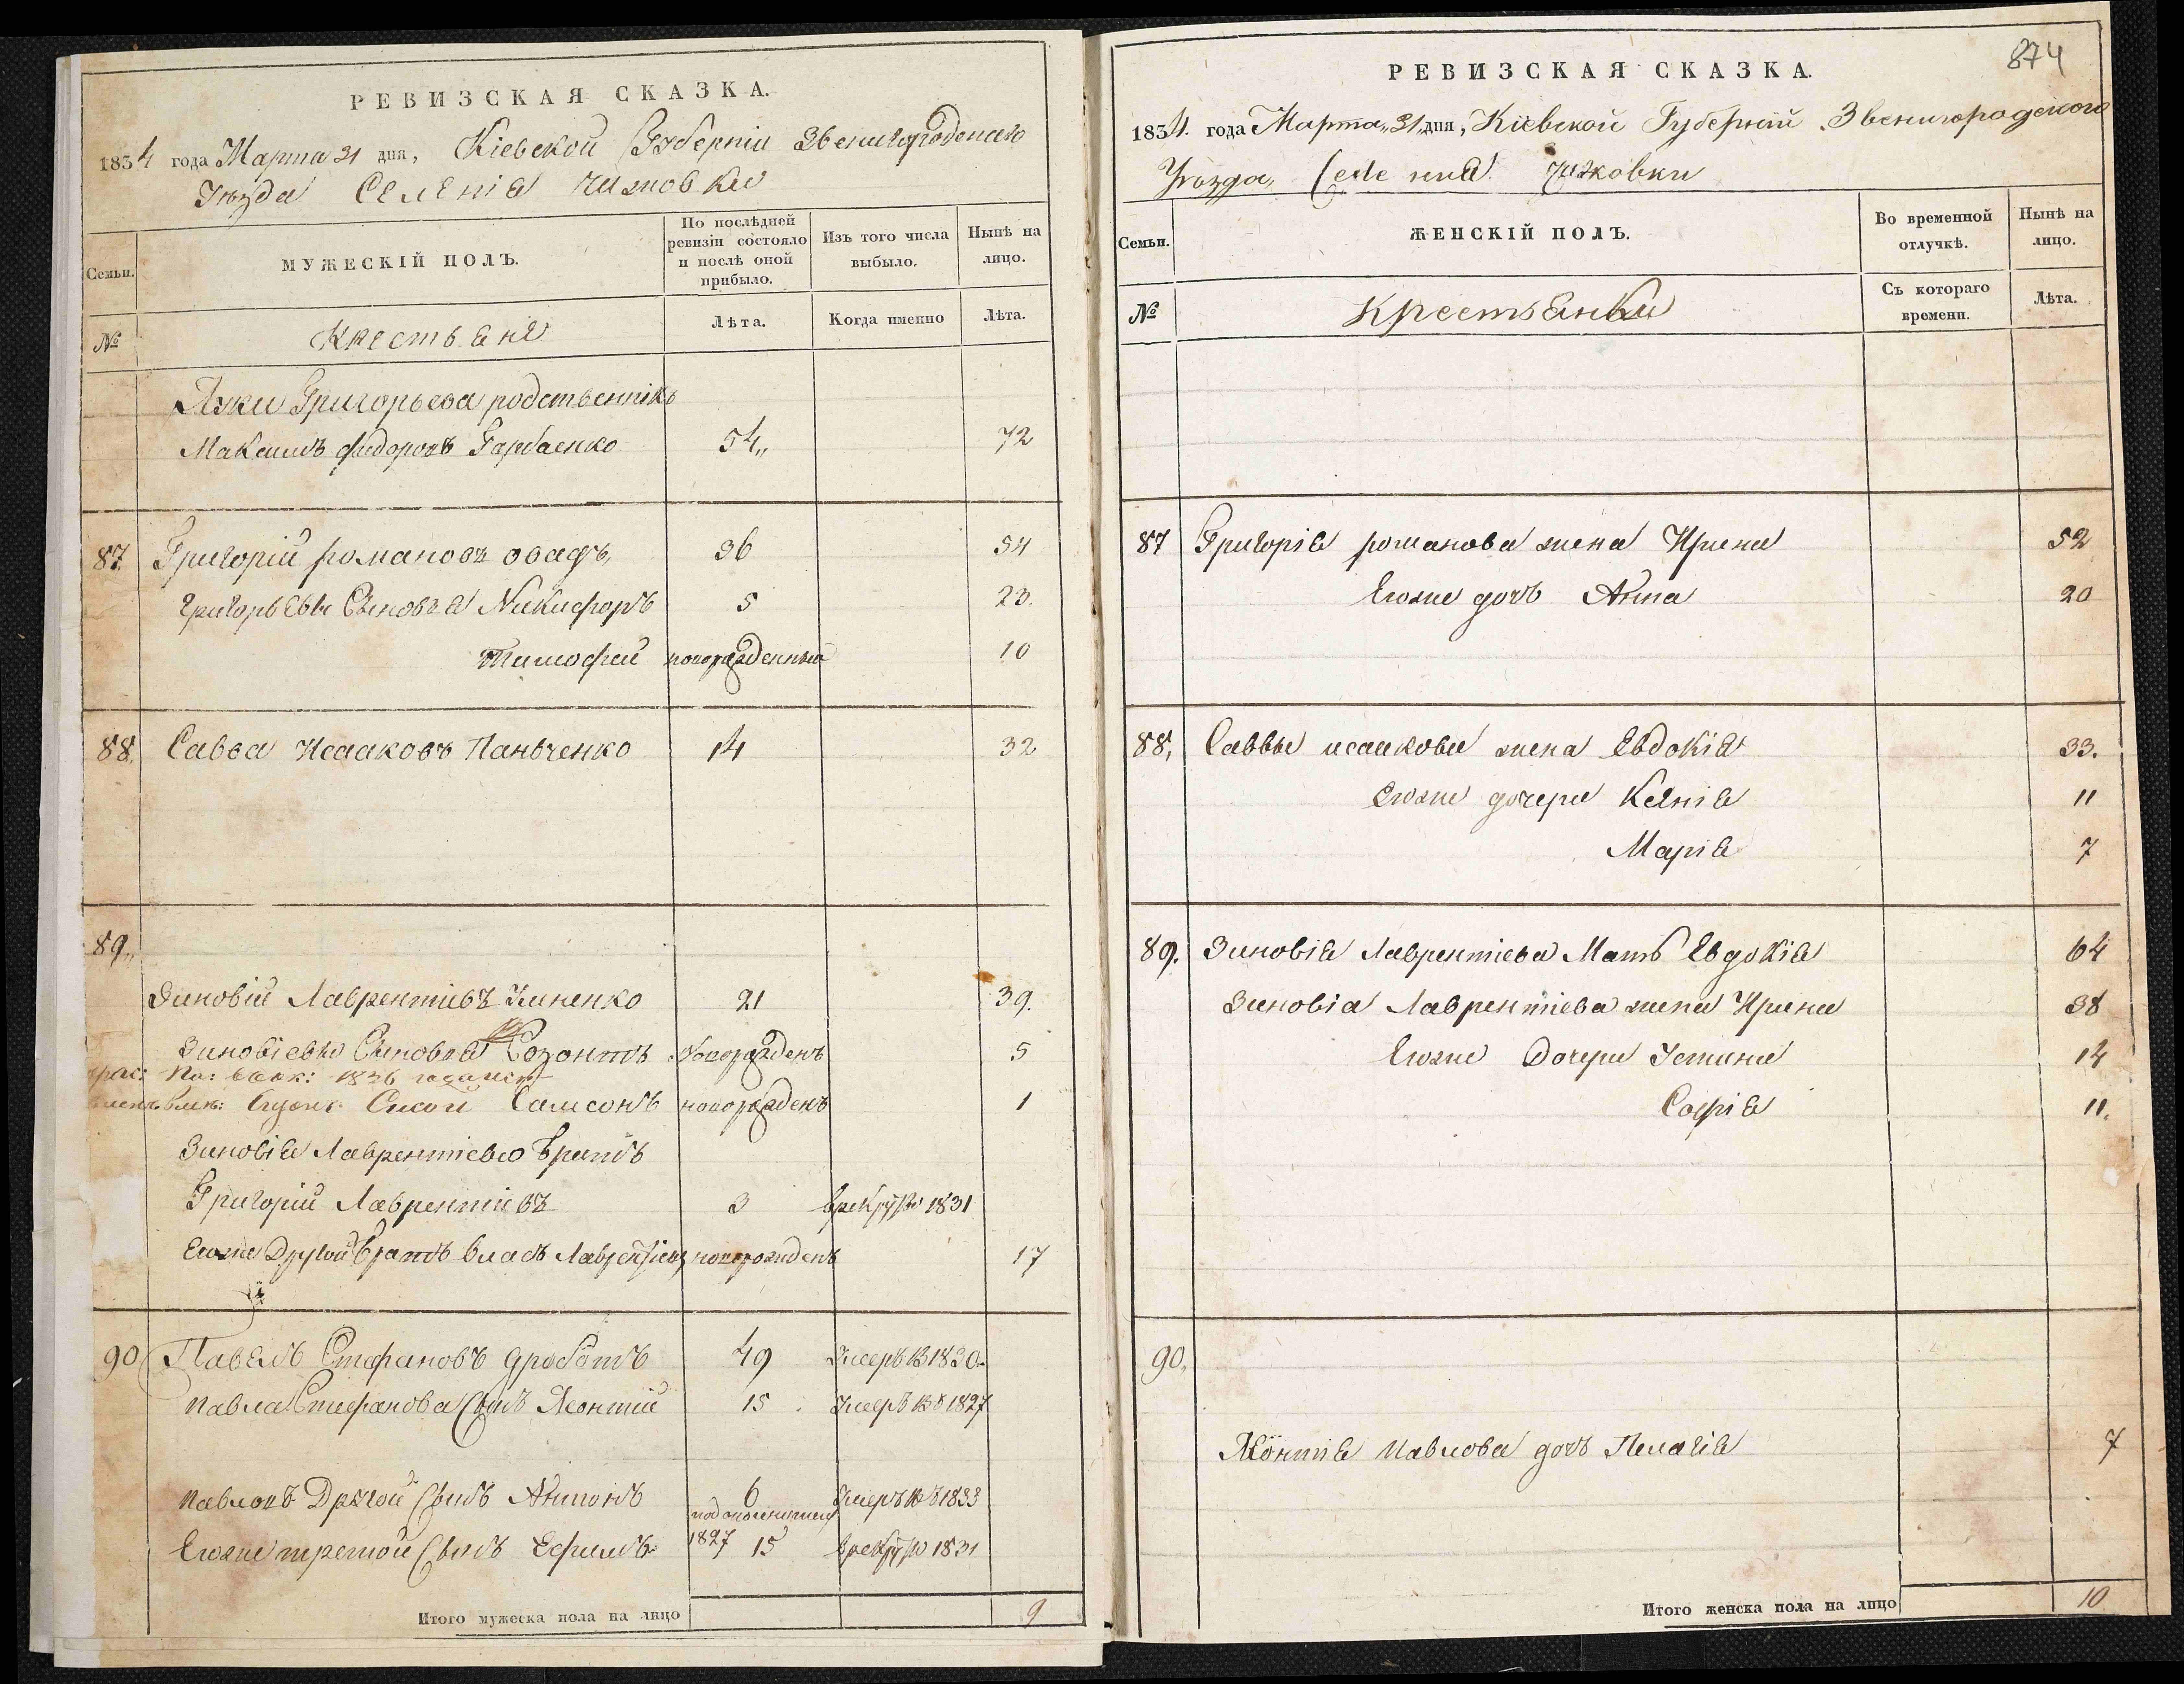 РЕВИЗСКАЯ СКАЗКА.
1834 года Марта 31 дня, Кіевской Губерніи Звенигородскаго
Уѣзда Селенія Чижовки
Семьи.
МУЖЕСКІЙ ПОЛЪ.
По послѣдней ревизіи состояло и послѣ оной прибыло.
Изъ того числа выбыло.
Нынѣ на лицо.
№
Крестьяне
Лѣта.
Когда именно
Лѣта.
Григорьева родственникъ
Максимъ Фидоровъ Гарбаенко 54 72
87 Григорій романовъ овадъ 36 54
Григорьевы Сыновья Никифоръ 5 23.
Тимофей новорожденный 10
88. Савва Исааковъ Панченко 14 32
89.
Зиновій Лаврентіевъ 21 39.
Зиновіевы Сыновья Созонтъ новорожденъ 5
1836 года
Самсонъ новорожденъ 1
Зиновія Лаврентіева братъ
Григорій Лаврентіевъ 3 врекруты 1831
Егоже Другой братъ Власъ Лаврентіевъ новорожденъ 17
90 Павелъ Стефановъ дроботъ 49 Умеръ въ 1830.
Павла Стефанова Сынъ Леонтій 15 Умеръ въ 1827
Павловъ Другой Сынъ Антонъ 6 Умеръ въ 1833
Егоже третой Сынъ Ефимъ 1827 15 врекруты 1831
Итого мужеска пола на лицо 9
874
РЕВИЗСКАЯ СКАЗКА.
1834. года Марта 31 дня, Кіевской Губерніи Звенигородского
Уѣзда, Селения Чижовки
Семьи.
ЖЕНСКІЙ ПОЛЪ.
Во временной отлучкѣ.
Нынѣ на лицо.
№
Крестьянки
Съ котораго времени.
Лѣта.
87 Григорія романова жена Ирина 52
Егоже дочь Анна 20
88, Саввы исаакова жена Евдокія 33.
Егоже дочери Ксенія 11
Марія 7
89. Зиновія Лаврентіева Мать Евдокія 64
Зиновіа Лаврентіева жена Ирина 38
Егоже Дочери Устина 14
Софія 11.
90.
Леонтія Павлова дочь Пелагія 7
Итого женска пола на лицо 10